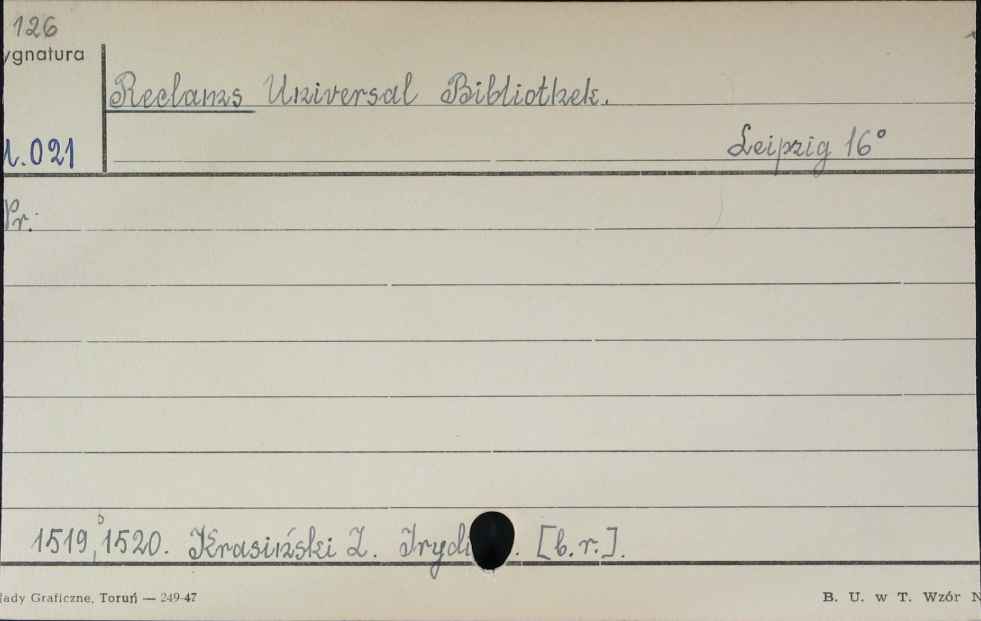 126
ygnatura
Reclams Universal Bibliothek.
Leipzig 16°
1.021
Pr.
1519, 1520. Krasiński Z. Irydi . [b.r.].
łady Graficzne, Toruń — 249-47
B. U. w T. Wzór N